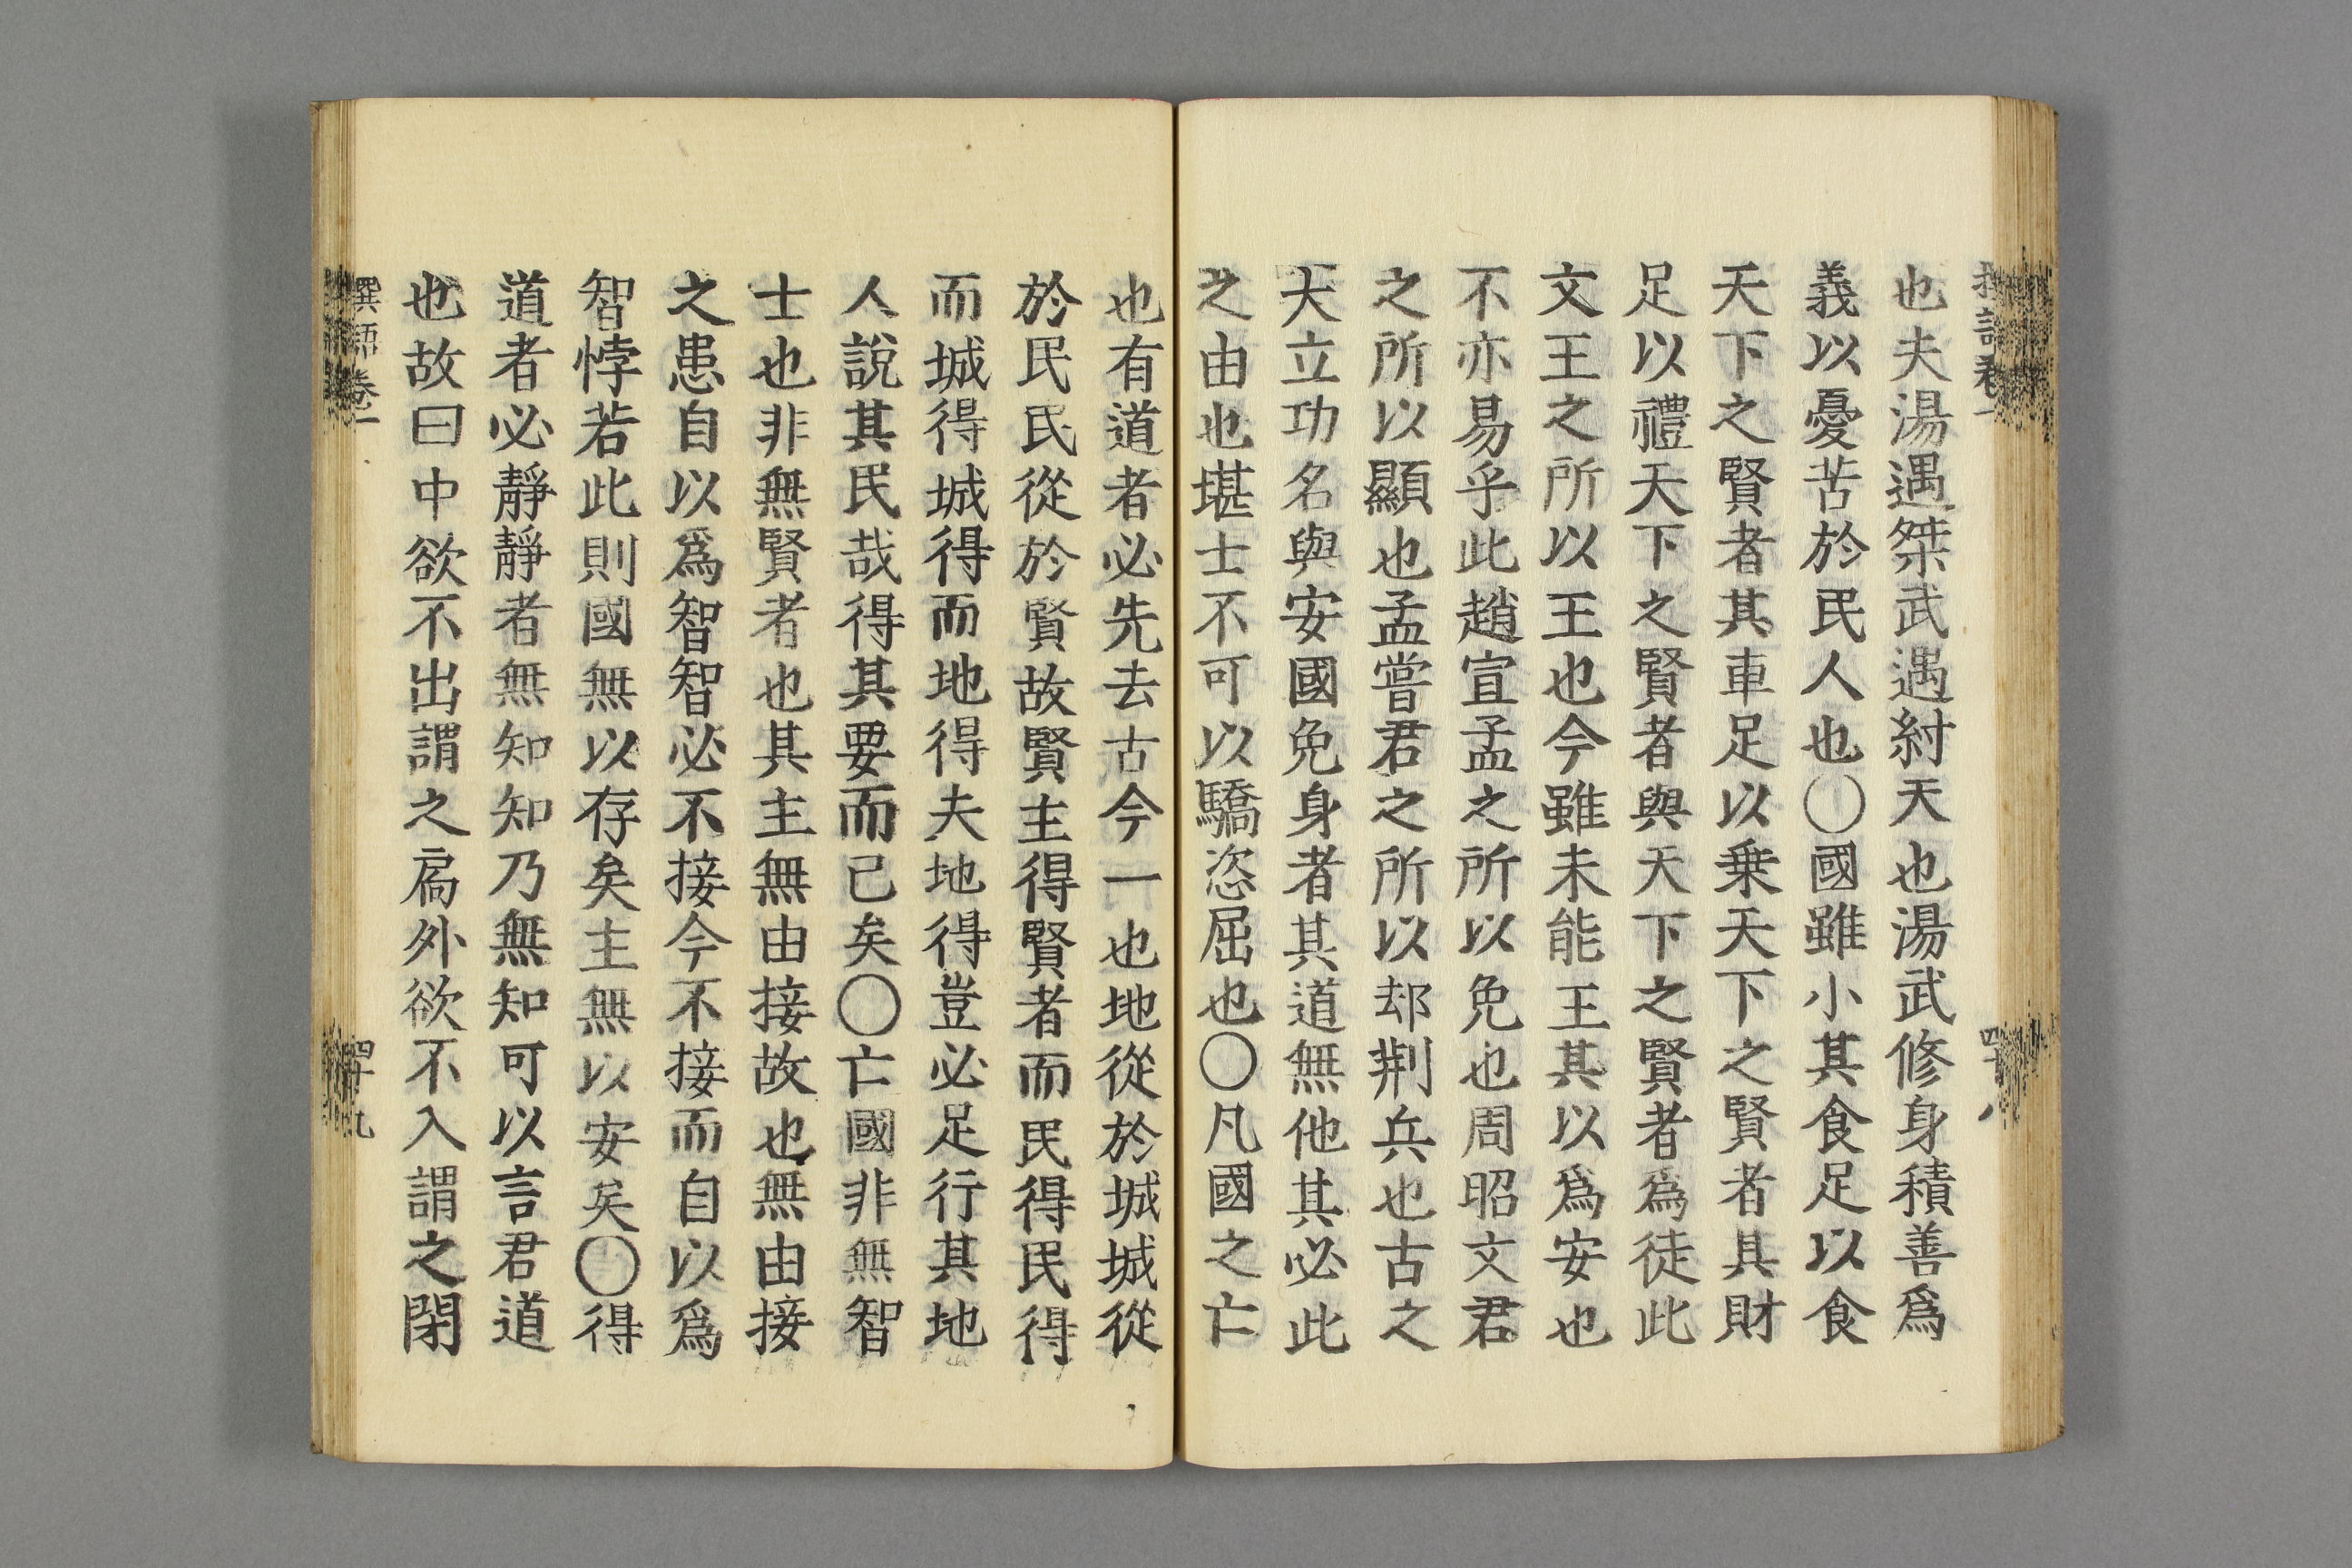 也夫湯遇桀武遇紂天也湯武修身積善爲
義以憂苦於民人也〇國雖小其食足以食
天下之賢者其車足以乗天下之賢者其財
足以禮天下之賢者與天下之賢者爲徒此
文王之所以王也今雖未能王其以爲安也
不亦易乎此趙宣孟之所以免也周昭文君
之所以顯也孟嘗君之所以却荆兵也古之
大立功名與安國免身者其道無他其必此
之由也堪士不可以驕恣屈也〇凡國之亡
也有道者必先去古今一也地從於城城從
於民民從於賢故賢主得賢者而民得民得
而城得城得而地得夫地得豈必足行其地
人說其民哉得其要而已矣〇亡國非無智
士也非無賢者也其主無由接故也無由接
之患自以爲智智必不接今不接而自以爲
智悖若此則國無以存矣主無以安矣〇得
道者必靜靜者無知知乃無知可以言君道
也故曰中欲不出謂之扃外欲不入謂之閉
卷一
四十九